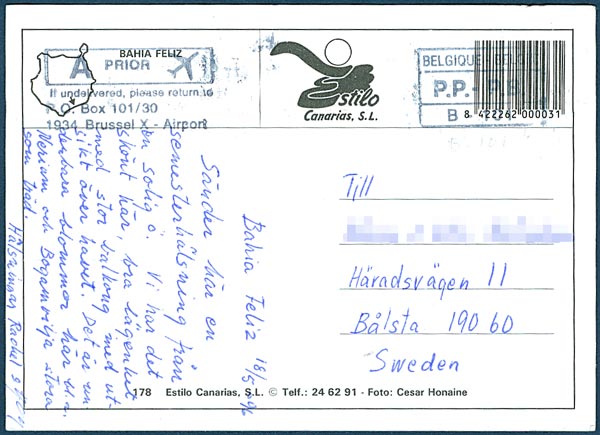 BAHIA FELIZ
A PRIOR
If undelivered, please return to
P.O. Box 101/30
1934 Brussel X - Airport
Estilo
Canarias, S.L.
BELGIQUE
P.P.
B
8 422262 000031
Bahia Feliz 18/5-96
Sänder här en
semesterhälsning från
en solig ö. Vi har det
skönt här, bra lägenhet
med stor balkong med ut-
sikt över havet. Det är un-
derbara blommor här bl.a.
Neriam och Bogainvilja stora
som träd.
Hälsningar Rachel
Till
Häradsvägen 11
Bålsta 190 60
Sweden
178 Estilo Canarias, S.L. © Telf.: 24 62 91 - Foto: Cesar Honaine